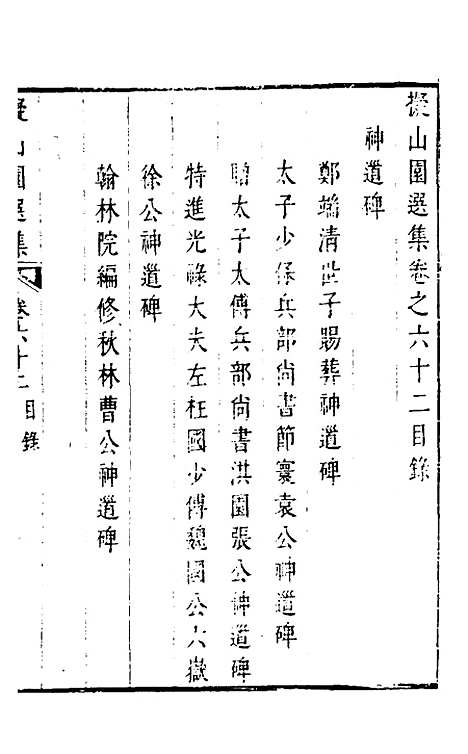 擬山園選集卷之六十二目錄
神道碑
鄭端清世子賜葬神道碑
太子少保兵部尚書節寰袁公神道碑
贈太子太傅兵部尚書洪園張公神道碑
特進光祿大夫左柱國少傅魏國公六嶽
徐公神道碑
翰林院編修秋林曹公神道碑
擬山園選集 卷六十二 目錄